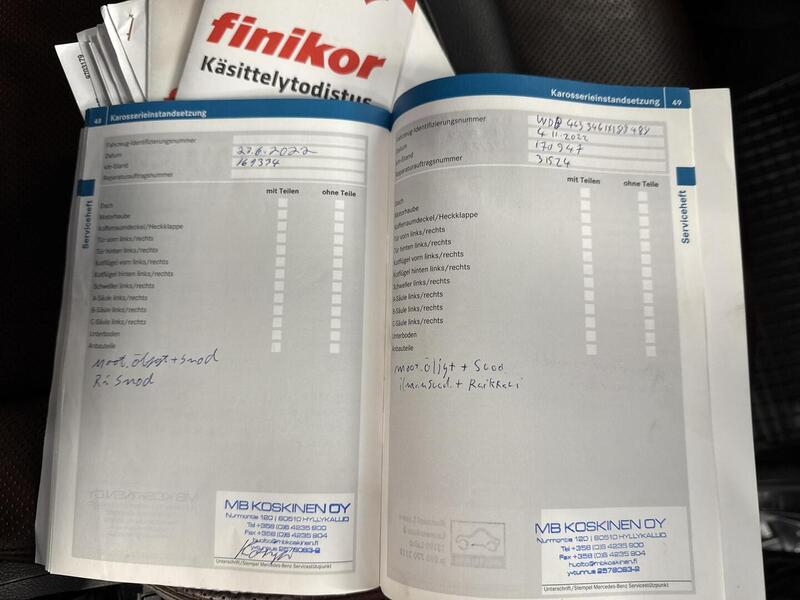 finikor
Käsittelytodistus
48 Karosserieinstandsetzung
Fahrzeug-Identifizierungsnummer
Datum 27.6.2022
km-Stand 161334
Reparaturauftragsnummer
mit Teilen ohne Teile
Dach
Motorhaube
Kofferraumdeckel/Heckklappe
Tür vorn links/rechts
Tür hinten links/rechts
Kotflügel vorn links/rechts
Kotflügel hinten links/rechts
Schweller links/rechts
A-Säule links/rechts
B-Säule links/rechts
C-Säule links/rechts
Unterboden
Anbauteile
Serviceheft
moot.öljyt + Suod
Suod
MB KOSKINEN OY
Nurmontie 120 | 60510 HYLLYKALLIO
Tel +358 (0)6 4235 900
Fax +358 (0)6 4235 904
huolto@mbkoskinen.fi
y-tunnus 2578083-2
Unterschrift/Stempel Mercedes-Benz Servicestützpunkt
Karosserieinstandsetzung 49
Fahrzeug-Identifizierungsnummer
Datum 4.11.2022
km-Stand 170947
Reparaturauftragsnummer 31524
mit Teilen ohne Teile
Dach
Motorhaube
Kofferraumdeckel/Heckklappe
Tür vorn links/rechts
Tür hinten links/rechts
Kotflügel vorn links/rechts
Kotflügel hinten links/rechts
Schweller links/rechts
A-Säule links/rechts
B-Säule links/rechts
C-Säule links/rechts
Unterboden
Anbauteile
Serviceheft
moot.öljyt + Suod.
ilmansuod. + Raikkari
MB KOSKINEN OY
Nurmontie 120 | 60510 HYLLYKALLIO
Tel +358 (0)6 4235 900
Fax +358 (0)6 4235 904
huolto@mbkoskinen.fi
y-tunnus 2578083-2
Unterschrift/Stempel Mercedes-Benz Servicestützpunkt